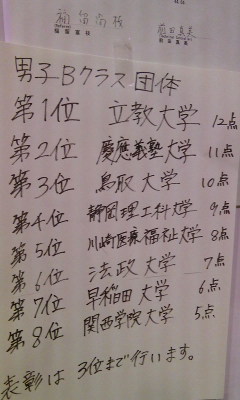 男子Bクラス団体
第1位 立教大学 12点
第2位 慶應義塾大学 11点
第3位 鳥取大学 10点
第4位 静岡理工科大学 9点
第5位 川崎医療福祉大学 8点
第6位 法政大学 7点
第7位 早稲田大学 6点
第8位 関西学院大学 5点
表彰は3位まで行います。